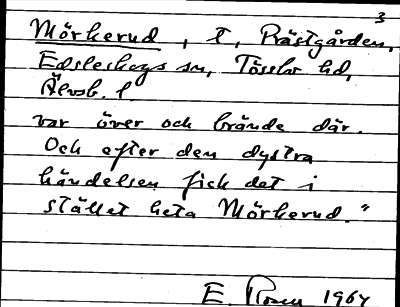 3
Mörkerud, t, Prästgården,
Edsleskogs sn, Tösslo hd,
Älvsb. l.
var över och brände där.
Och efter den dystra
händelsen fick det i
stället heta Mörkerud."
E. Rosen 1964